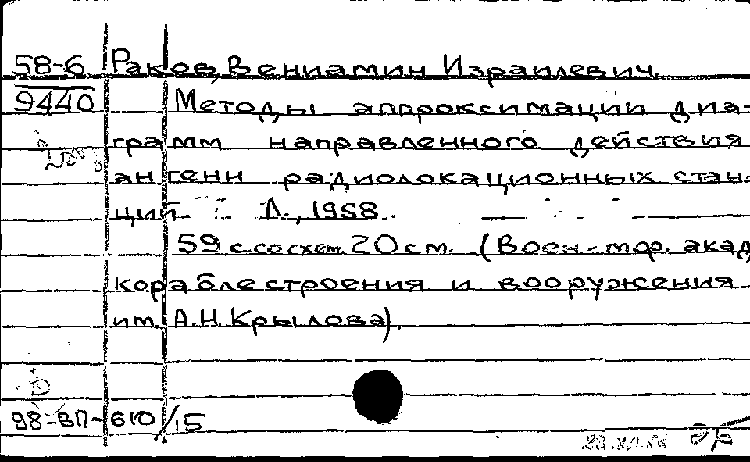 58-6 Раков, Вениамин Израилевич.
9440 Методы аппроксимации диа-
грамм направленного действия
антенн радиолокационных стан-
ций. Л., 1958.
59 с. со схем. 20 см. (Воен.-мор. акад.
кораблестроения и вооружения
им. А.Н. Крылова).
98-ВП-610/15